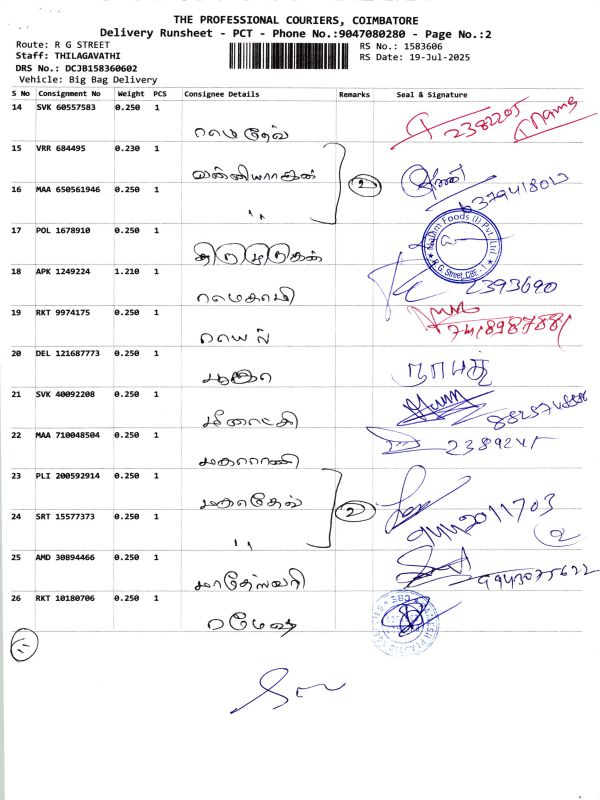 THE PROFESSIONAL COURIERS, COIMBATORE
Delivery Runsheet - PCT - Phone No.:9047080280 - Page No.:2
Route: R G STREET
Staff: THILAGAVATHI
DRS No.: DCJB158360602
Vehicle: Big Bag Delivery
RS No.: 1583606
RS Date: 19-Jul-2025
S No Consignment No Weight PCS Consignee Details Remarks Seal & Signature
14 SVK 60557583 0.250 1
2382205
15 VRR 684495 0.230 1
வன்னியராஜன்
16 MAA 650561946 0.250 1
" 2
17 POL 1678910 0.250 1
R G Street, CBE - 1
18 APK 1249224 1.210 1
2393690
19 RKT 9974175 0.250 1
7418987881
20 DEL 121687773 0.250 1
21 SVK 40092208 0.250 1
மீனாட்சி
22 MAA 710048504 0.250 1
மகாராணி 2389241
23 PLI 200592914 0.250 1
மகாதேவ்
24 SRT 15577373 0.250 1
" 2
2
25 AMD 30894466 0.250 1
மாதேஸ்வரி 9943075622
26 RKT 10180706 0.250 1
ரமேஷ்
11